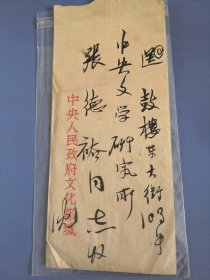 送 鼓樓東大街103号
中央文学研究所
張德裕同志收
中央人民政府文化部緘